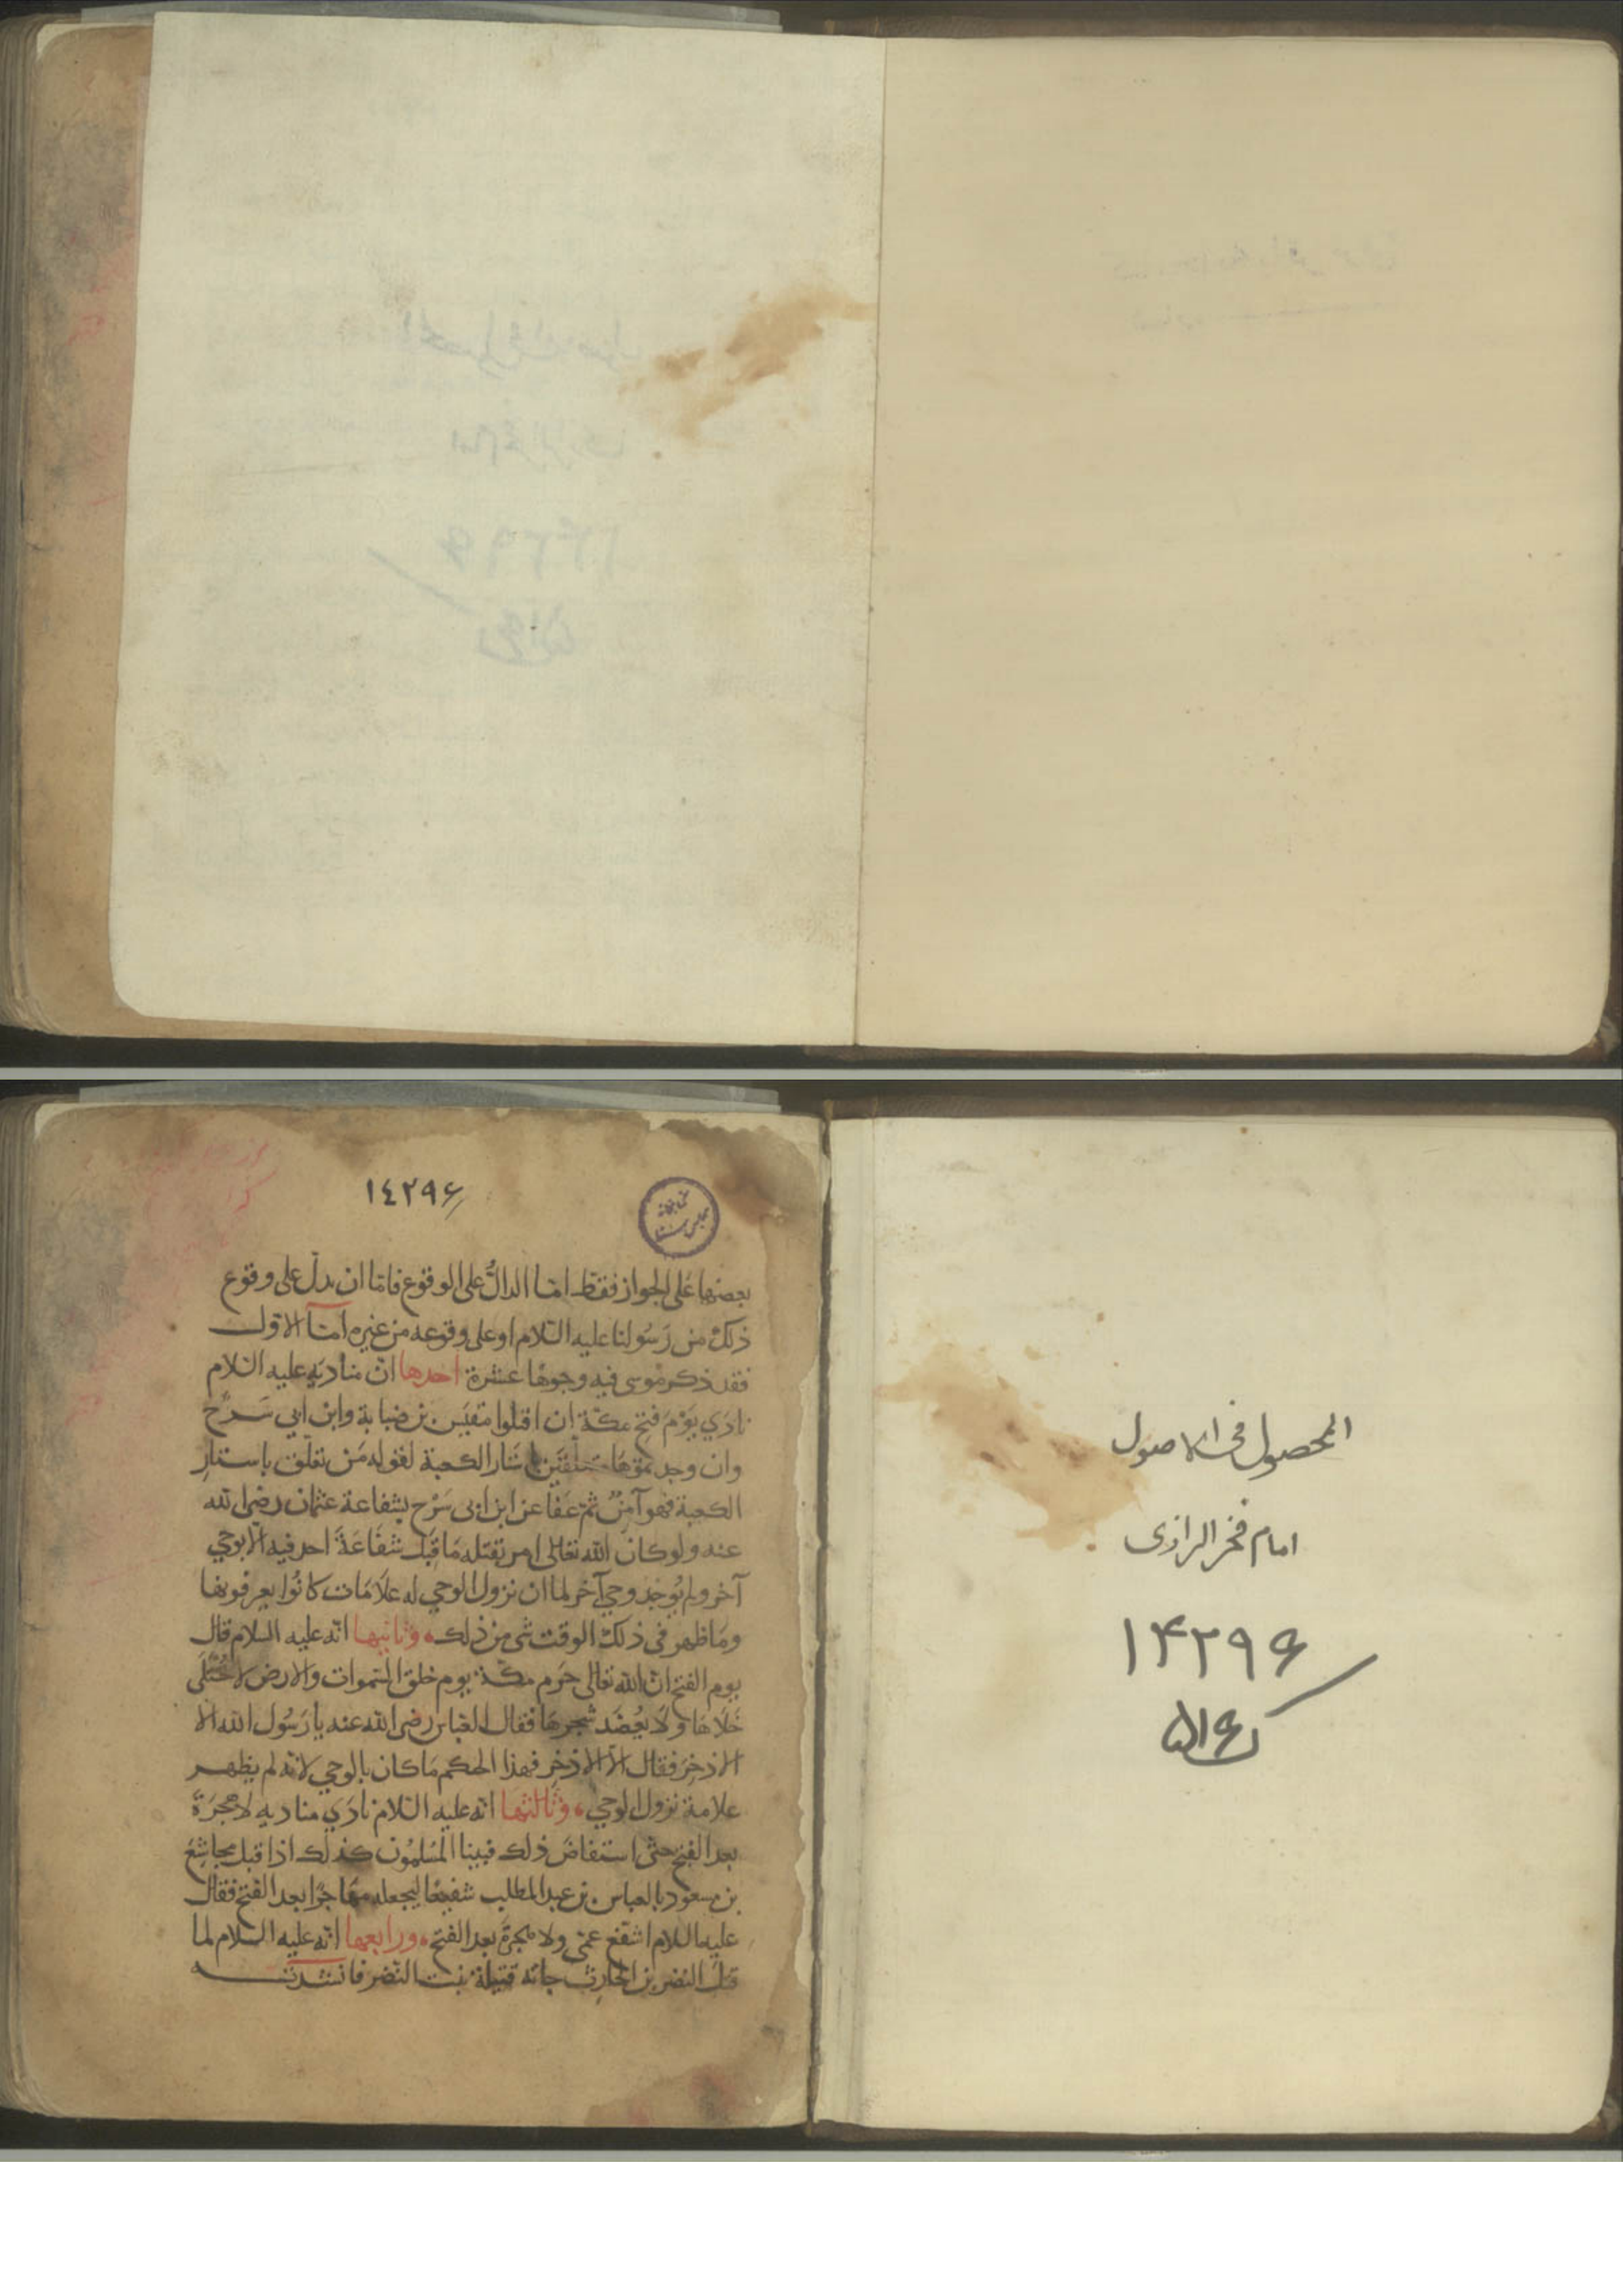 المحصول فی الاصول
امام فخر الرازی
۱۴۲۹۶
۱٤۲۹۶
کتابخانه
مجلس سنا
بعضها على الجواز فقط امّا الدالّ على الوقوع فامّا ان يدلّ على وقوع
ذلك من رَسُولنا عليه السّلام او على وقوعه من غيره امّا الاوّل
فقد ذكر مُوسى فيه وجوهًا عشرة احدها انّ مناديَه عليه السّلام
نادَى يَوْمَ فتح مكّة ان اقتلوا مقيَس بن ضبابة وابن ابي سَرْح
وان وجدتموهَا متعلّقَين باستار الكعبة لقوله مَنْ تعلّق باستارِ
الكعبة فهو آمِنٌ ثمّ عَفا عن ابن ابى سَرْح بشفاعة عثمان رضى الله
عنه ولو كان الله تعالى امر بقتله مَا قَبِلَ شفَاعَةَ احد فيه الّا بوحي
آخر ولم يُوجَد وحي آخر لما ان نزول الوحي له علَامَات كانُوا يعرفونها
ومَا ظهر في ذلك الوقت شى من ذلك وثانيها انّه عليه السلام قال
يوم الفتح انّ الله تعالى حرم مكّة يوم خلق السّموات والارض لا يُختَلَى
خَلَاهَا ولَا يُعضَد شجرهَا فقال العباس رضى الله عنه يا رَسُول الله الّا
الاذخِرَ فقال الّا الاذخِر فهذا الحكم مَا كان بالوحي لانّه لم يظهر
علامة نزول الوحي وثالثها انّه عليه السّلام نادَى مناديه لا هجرَةَ
بعد الفتح حتّى استفاضَ ذلك فبينا المُسْلمُون كذلك اذ اقبل مجاشع
بن مسعود بالعباس بن عبد المطلب شفيعًا ليجعله مهَاجرًا بعد الفتح فقال
عليه السّلام اشفّع عمّى ولا هجرَةَ بعد الفتح ورابعها انّه عليه السلام لما
قتل النضر بن الحارث جاته قتيلة بنت النّضر فانشدته